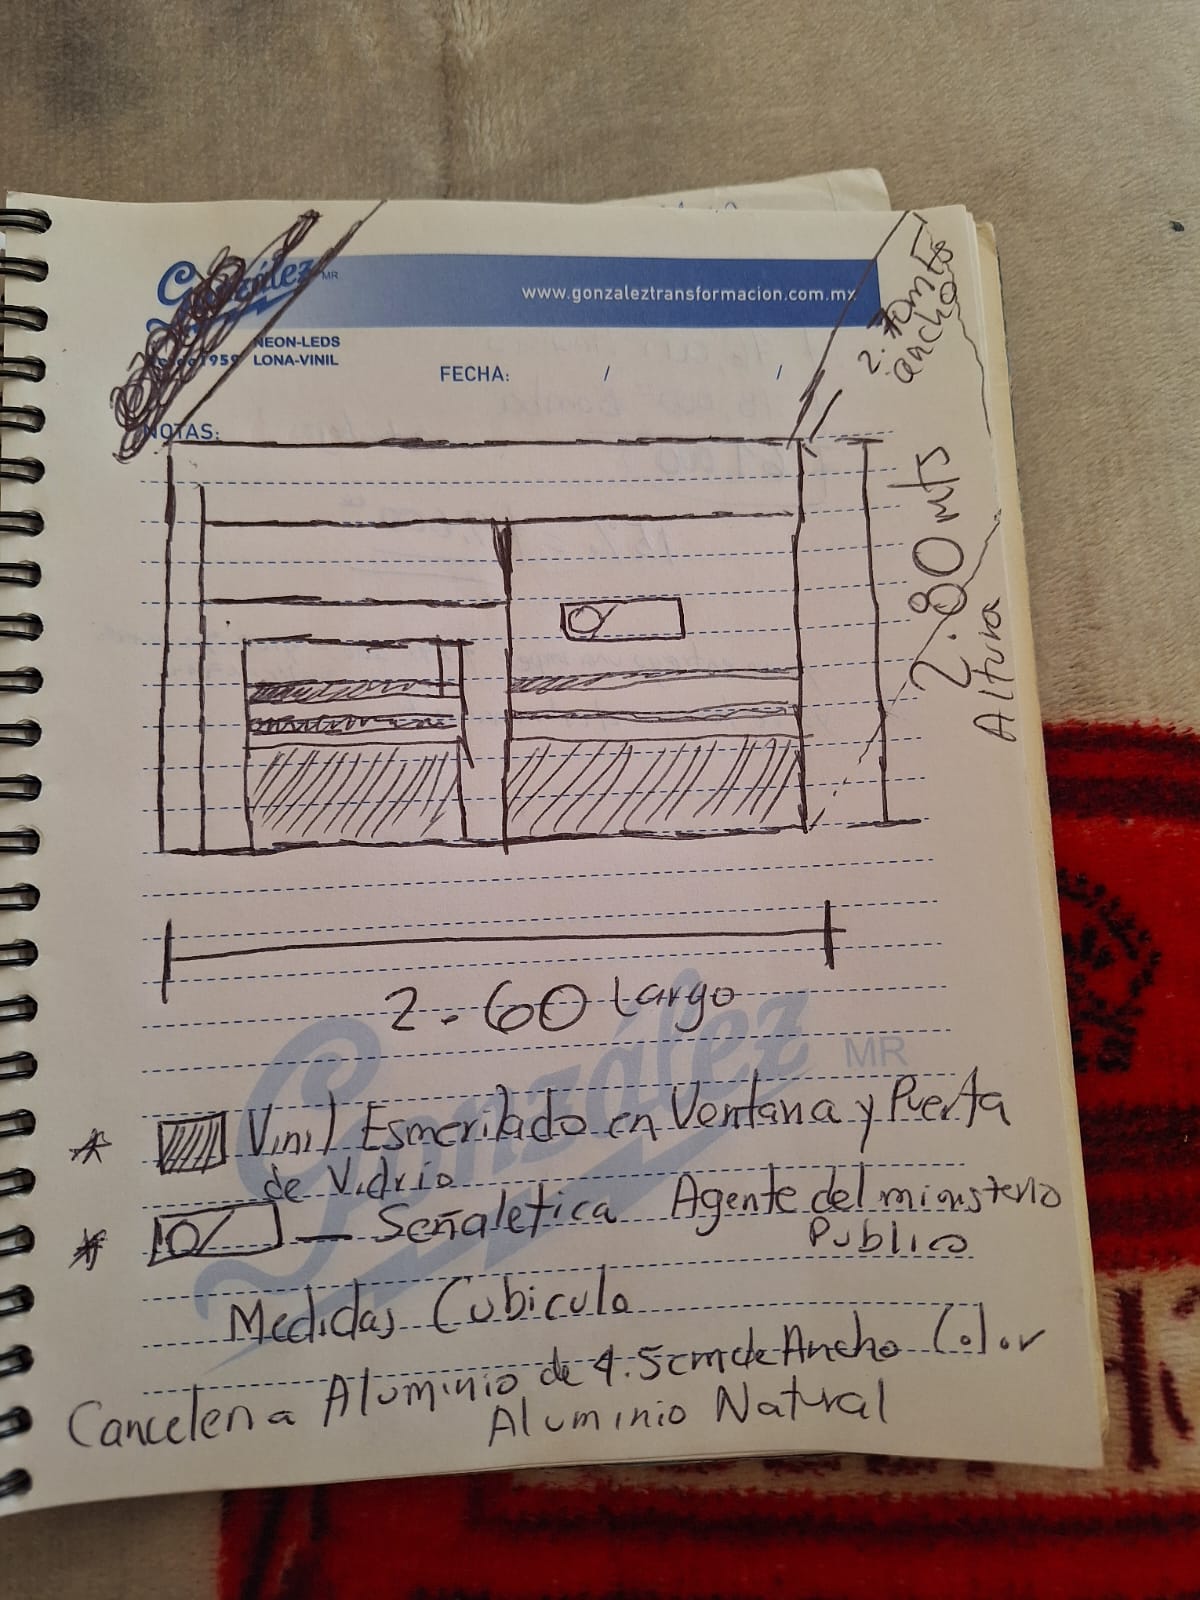 González MR
www.gonzaleztransformacion.com.mx
NEON-LEDS
1959 LONA-VINIL
FECHA: / /
NOTAS:
2.70mts
ancho
2.80 mts
Altura
2.60 Largo
González MR
Vinil Esmerilado en Ventana y Puerta
de Vidrio
Señaletica Agente del ministerio
Publico
Medidas Cubiculo
Canceleria Aluminio de 4.5cm de Ancho Color
Aluminio Natural